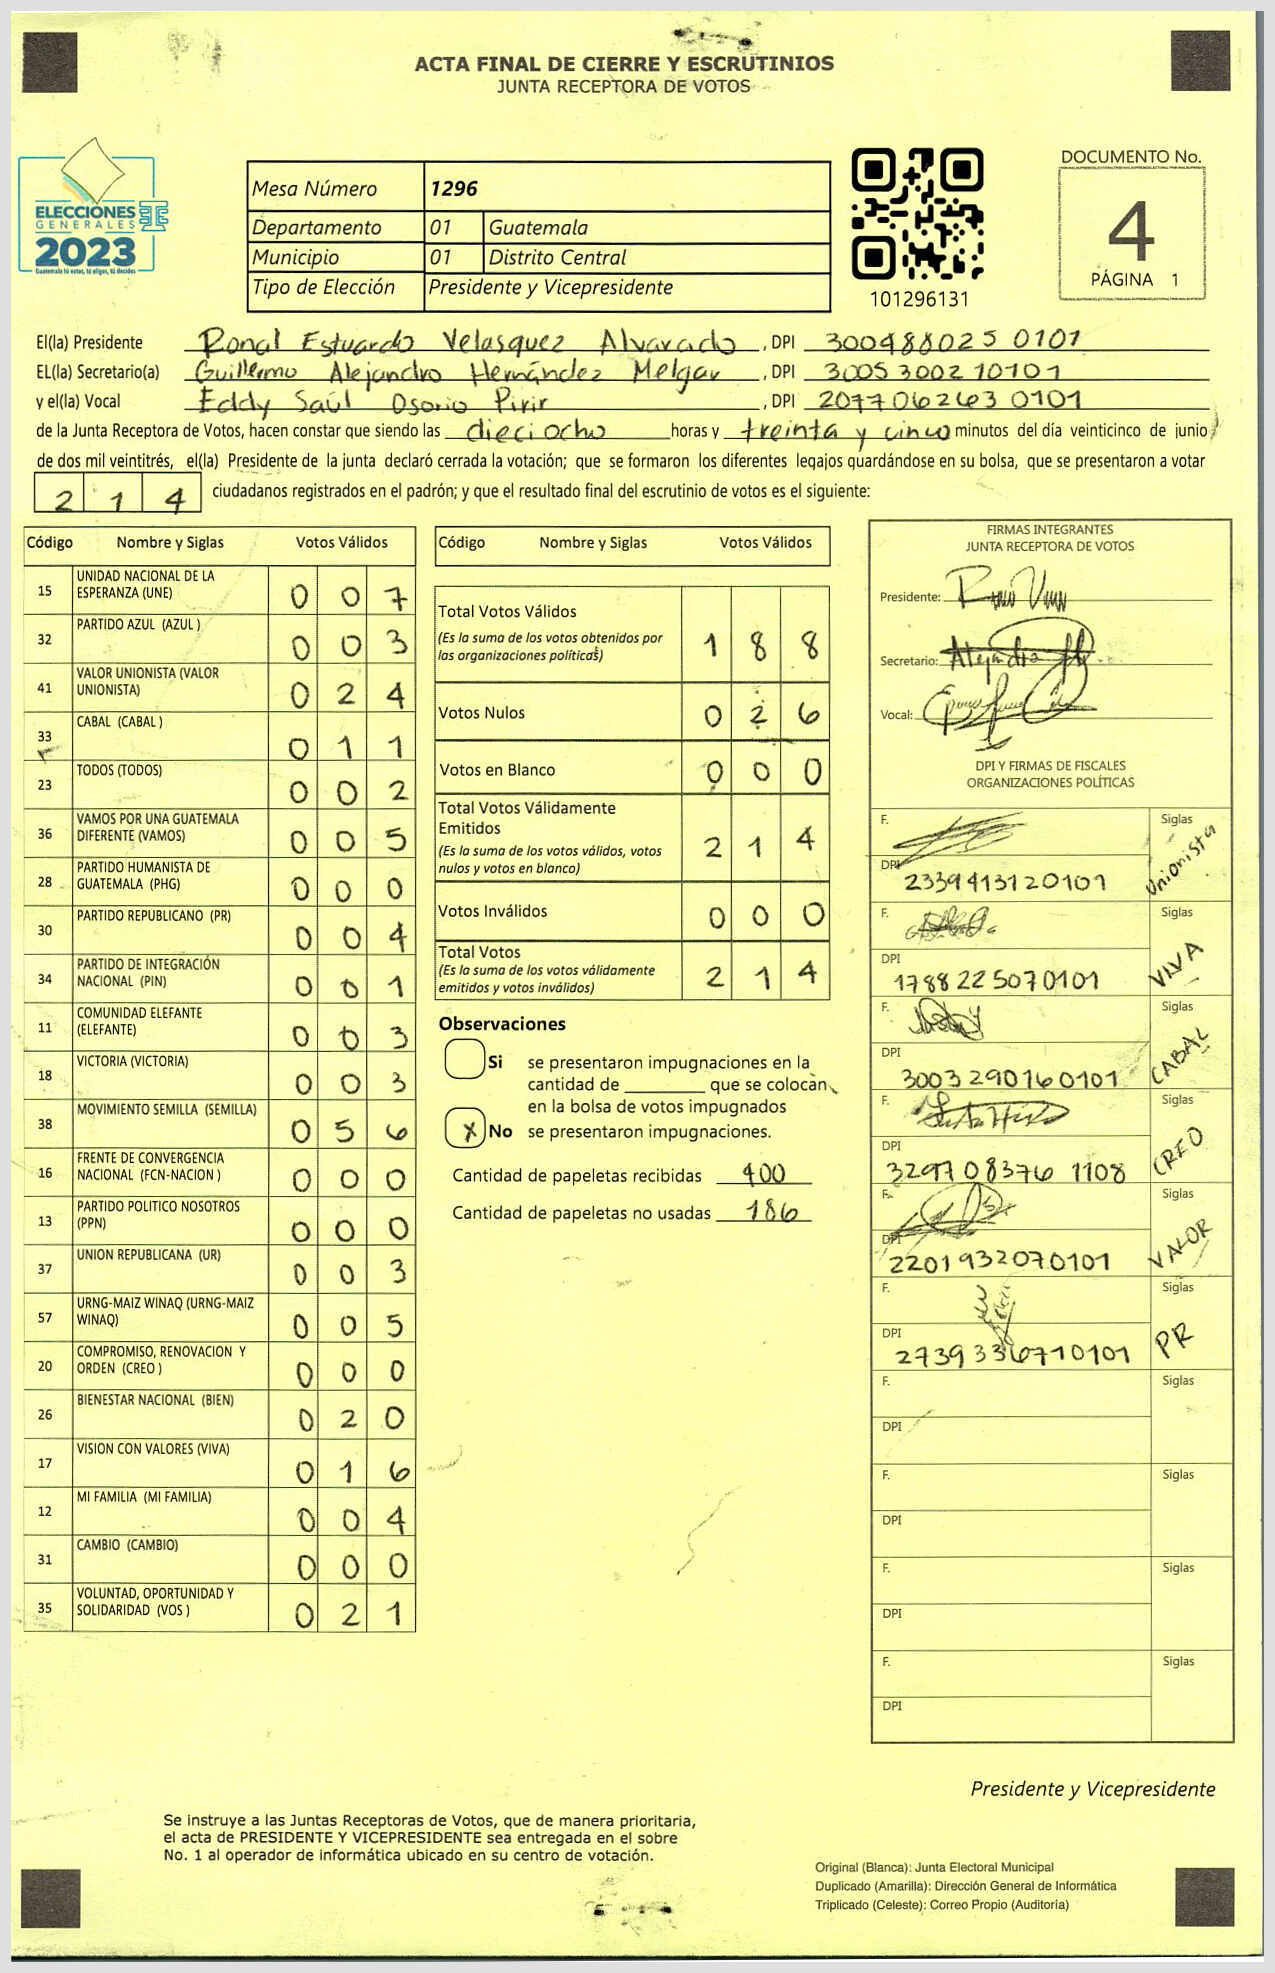 ACTA FINAL DE CIERRE Y ESCRUTINIOS
JUNTA RECEPTORA DE VOTOS
ELECCIONES
GENERALES
2023
Guatemala tú votas, tú eliges, tú decides
Mesa Número 1296
Departamento 01 Guatemala
Municipio 01 Distrito Central
Tipo de Elección Presidente y Vicepresidente
101296131
DOCUMENTO No.
4
PÁGINA 1
El(la) Presidente Ronal Estuardo Velasquez Alvarado, DPI 300488025 0101
EL(la) Secretario(a) Guillermo Alejandro Hernández Melgar, DPI 3005 30021 0101
y el(la) Vocal Eddy Saúl Osorio Pirir, DPI 207706263 0101
de la Junta Receptora de Votos, hacen constar que siendo las dieciocho horas y treinta y cinco minutos del día veinticinco de junio
de dos mil veintitrés, el(la) Presidente de la junta declaró cerrada la votación; que se formaron los diferentes legajos guardándose en su bolsa, que se presentaron a votar
2 1 4 ciudadanos registrados en el padrón; y que el resultado final del escrutinio de votos es el siguiente:
Código Nombre y Siglas Votos Válidos
15 UNIDAD NACIONAL DE LA
ESPERANZA (UNE) 0 0 7
32 PARTIDO AZUL (AZUL ) 0 0 3
41 VALOR UNIONISTA (VALOR
UNIONISTA) 0 2 4
33 CABAL (CABAL ) 0 1 1
23 TODOS (TODOS) 0 0 2
36 VAMOS POR UNA GUATEMALA
DIFERENTE (VAMOS) 0 0 5
28 PARTIDO HUMANISTA DE
GUATEMALA (PHG) 0 0 0
30 PARTIDO REPUBLICANO (PR) 0 0 4
34 PARTIDO DE INTEGRACIÓN
NACIONAL (PIN) 0 0 1
11 COMUNIDAD ELEFANTE
(ELEFANTE) 0 0 3
18 VICTORIA (VICTORIA) 0 0 3
38 MOVIMIENTO SEMILLA (SEMILLA) 0 5 6
16 FRENTE DE CONVERGENCIA
NACIONAL (FCN-NACION ) 0 0 0
13 PARTIDO POLITICO NOSOTROS
(PPN) 0 0 0
37 UNION REPUBLICANA (UR) 0 0 3
57 URNG-MAIZ WINAQ (URNG-MAIZ
WINAQ) 0 0 5
20 COMPROMISO, RENOVACION Y
ORDEN (CREO ) 0 0 0
26 BIENESTAR NACIONAL (BIEN) 0 2 0
17 VISION CON VALORES (VIVA) 0 1 6
12 MI FAMILIA (MI FAMILIA) 0 0 4
31 CAMBIO (CAMBIO) 0 0 0
35 VOLUNTAD, OPORTUNIDAD Y
SOLIDARIDAD (VOS ) 0 2 1
Código Nombre y Siglas Votos Válidos
Total Votos Válidos
(Es la suma de los votos obtenidos por
las organizaciones políticas) 1 8 8
Votos Nulos 0 2 6
Votos en Blanco 0 0 0
Total Votos Válidamente
Emitidos
(Es la suma de los votos válidos, votos
nulos y votos en blanco) 2 1 4
Votos Inválidos 0 0 0
Total Votos
(Es la suma de los votos válidamente
emitidos y votos inválidos) 2 1 4
Observaciones
Si se presentaron impugnaciones en la
cantidad de que se colocan
en la bolsa de votos impugnados
X No se presentaron impugnaciones.
Cantidad de papeletas recibidas 400
Cantidad de papeletas no usadas 186
FIRMAS INTEGRANTES
JUNTA RECEPTORA DE VOTOS
Presidente:
Secretario: Alejandro
Vocal:
DPI Y FIRMAS DE FISCALES
ORGANIZACIONES POLÍTICAS
F. Siglas
DPI 2339413120101 Unionista
F. Siglas
DPI 1788225070101 VIVA
F. Siglas
DPI 3003290160101 CABAL
F. Siglas
DPI 329708376 1108 CREO
F. Siglas
DPI 2201932070101 VALOR
F. Siglas
DPI 2739336710101 PR
F. Siglas
DPI
F. Siglas
DPI
F. Siglas
DPI
F. Siglas
DPI
Presidente y Vicepresidente
Se instruye a las Juntas Receptoras de Votos, que de manera prioritaria,
el acta de PRESIDENTE Y VICEPRESIDENTE sea entregada en el sobre
No. 1 al operador de informática ubicado en su centro de votación.
Original (Blanca): Junta Electoral Municipal
Duplicado (Amarilla): Dirección General de Informática
Triplicado (Celeste): Correo Propio (Auditoría)